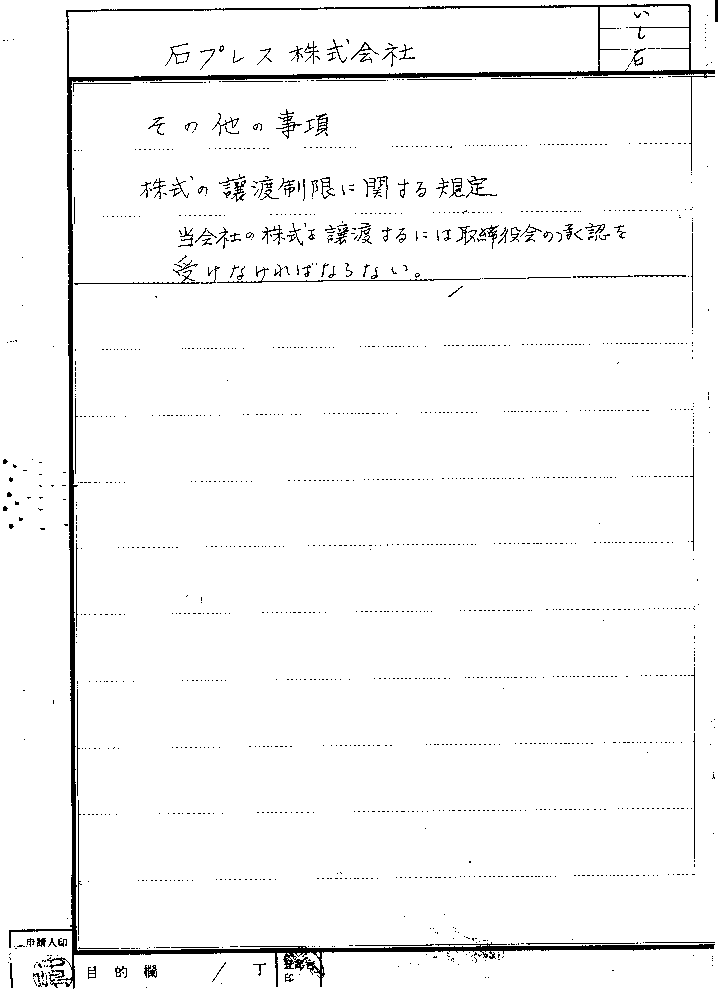 石プレス株式会社
い
し
石
その他の事項
株式の譲渡制限に関する規定
当会社の株式を譲渡するには取締役会の承認を
受けなければならない。
申請人印
目的欄 / 丁
印